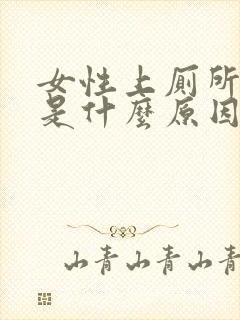 女性上厕所
是什麼原因
山青山青山青